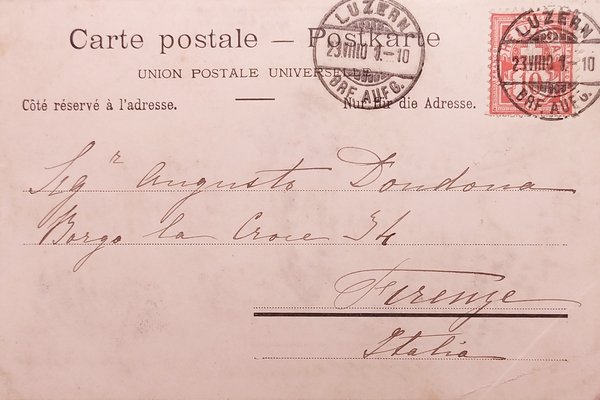 Carte postale — Postkarte
UNION POSTALE UNIVERSELLE
Côté réservé à l'adresse. Nur für die Adresse.
LUZERN
23.VIII.0 1.-10
BRF. AUFG.
LUZERN
23.VIII.0 1.-10
BRF. AUFG.
10
Sigr Augusto Dondona
Borgo la Croce 34
Firenze
Italia